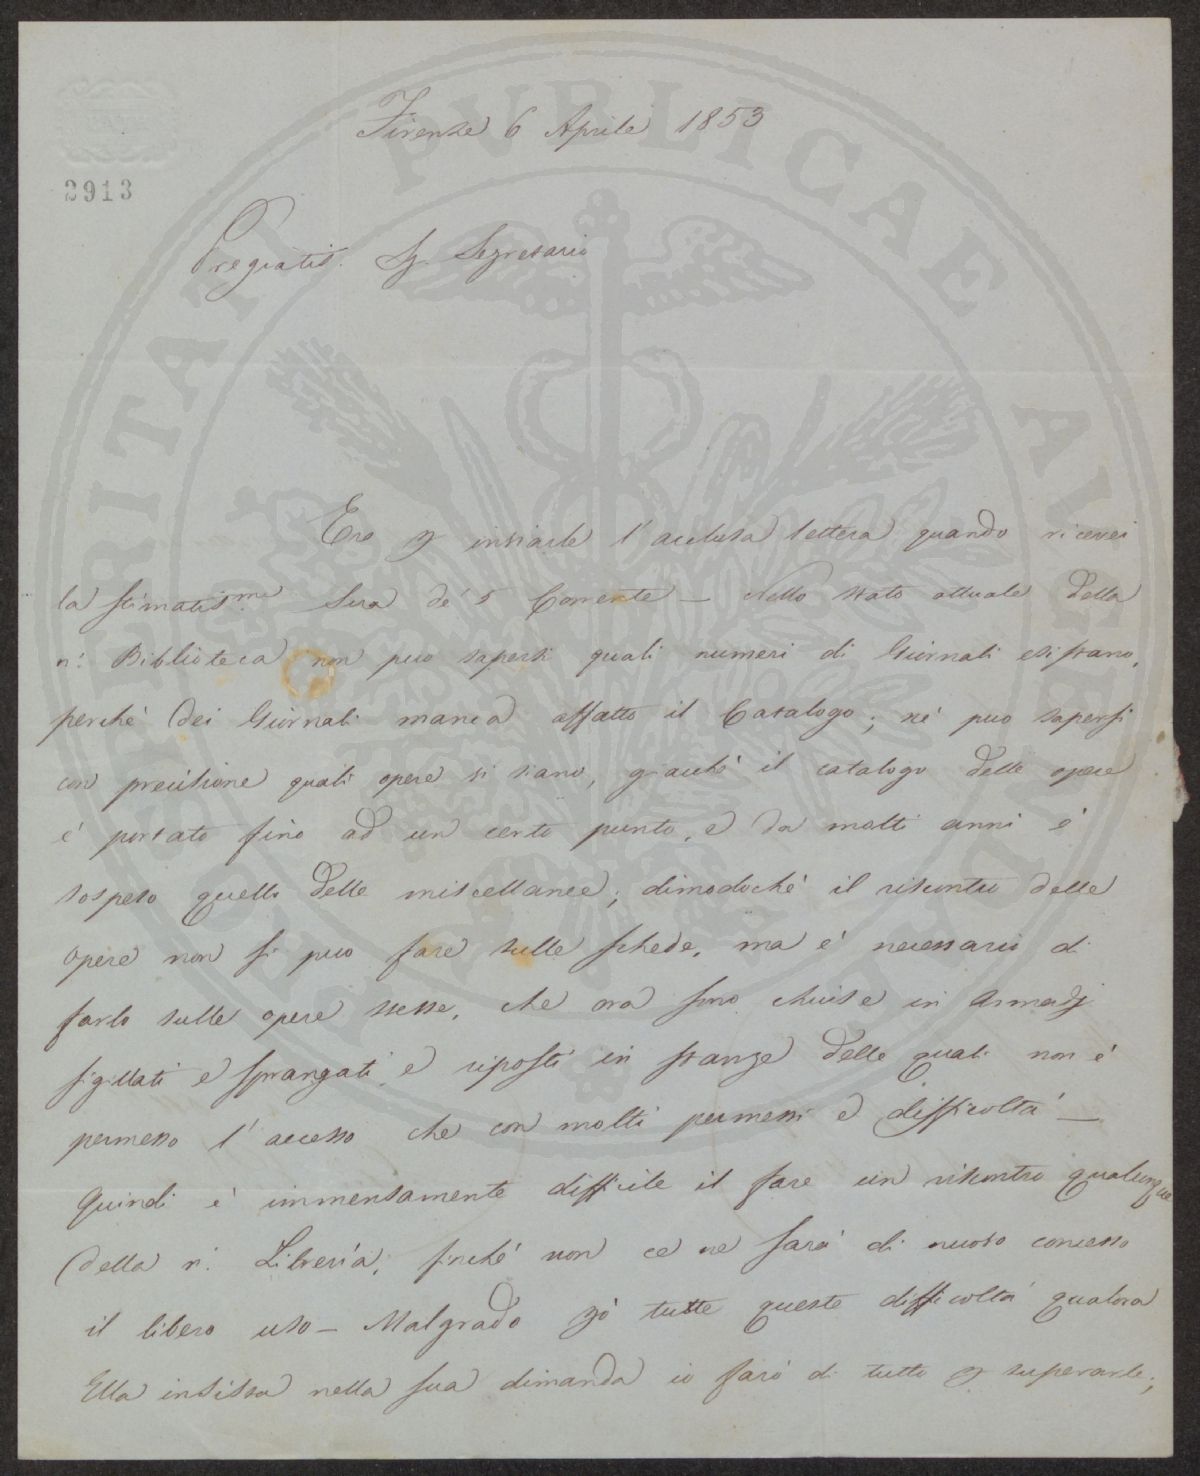 Firenze 6 Aprile 1853
2913
Pregiatis. Sg. Segretario
Ero p inviarle l'acclusa lettera quando ricevei
la stimatis.ma Sua de' 5 Corrente — Nello stato attuale della
n: Biblioteca non può sapersi quali numeri di Giornali esistano,
perchè dei Giornali manca affatto il Catalogo; nè può sapersi
con precisione quali opere vi siano, giacchè il catalogo delle opere
è portato fino ad un certo punto, e da molti anni è
sospeso quello delle miscellanee; dimodochè il riscontro delle
opere non si può fare sulle schede, ma è necessario di
farlo sulle opere stesse, che ora sono chiuse in Armadj
sigillati e sprangati, e riposti in stanze delle quali non è
permesso l'accesso che con molti permessi e difficoltà —
Quindi è immensamente difficile il fare un riscontro qualunque
della n: Libreria, finchè non ce ne sarà di nuovo concesso
il libero uso — Malgrado pò tutte queste difficoltà qualora
Ella insista nella sua dimanda io farò di tutto p superarle;
PUBLICAE